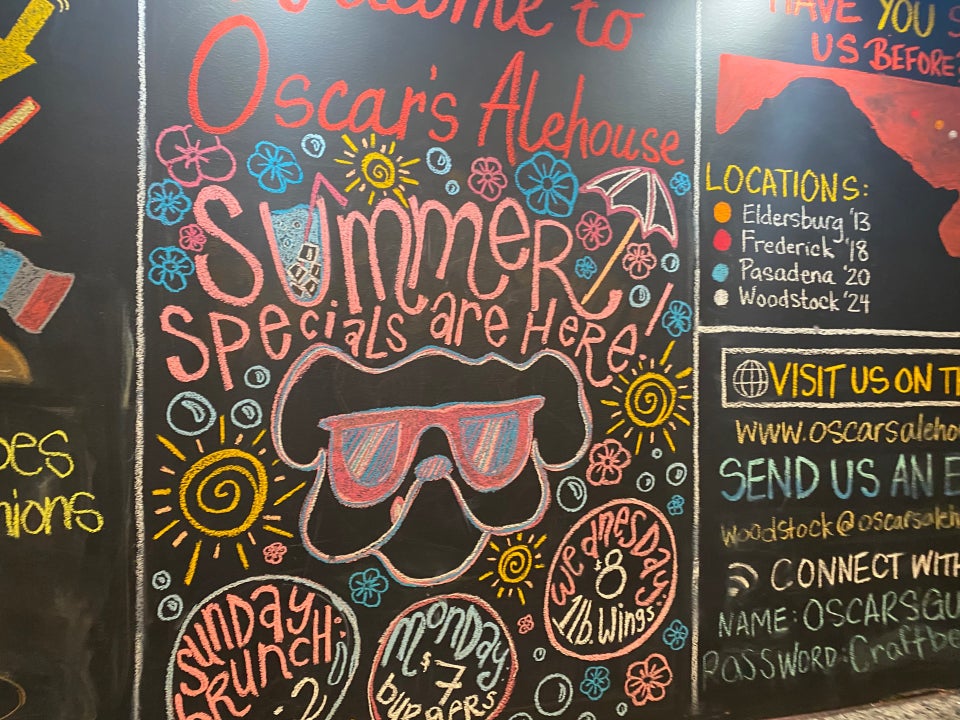 Welcome to
Oscar's Alehouse
Summer
specials are Here!
Sunday
Brunch:
Monday
$7
burgers
Wednesday
$8
1lb. Wings
HAVE YOU
US BEFORE?
LOCATIONS:
Eldersburg '13
Frederick '18
Pasadena '20
Woodstock '24
VISIT US ON
www.oscarsaleho
SEND US AN E
woodstock@oscarsaleh
CONNECT WITH
NAME: OSCARSGU
PASSWORD: Craftbe